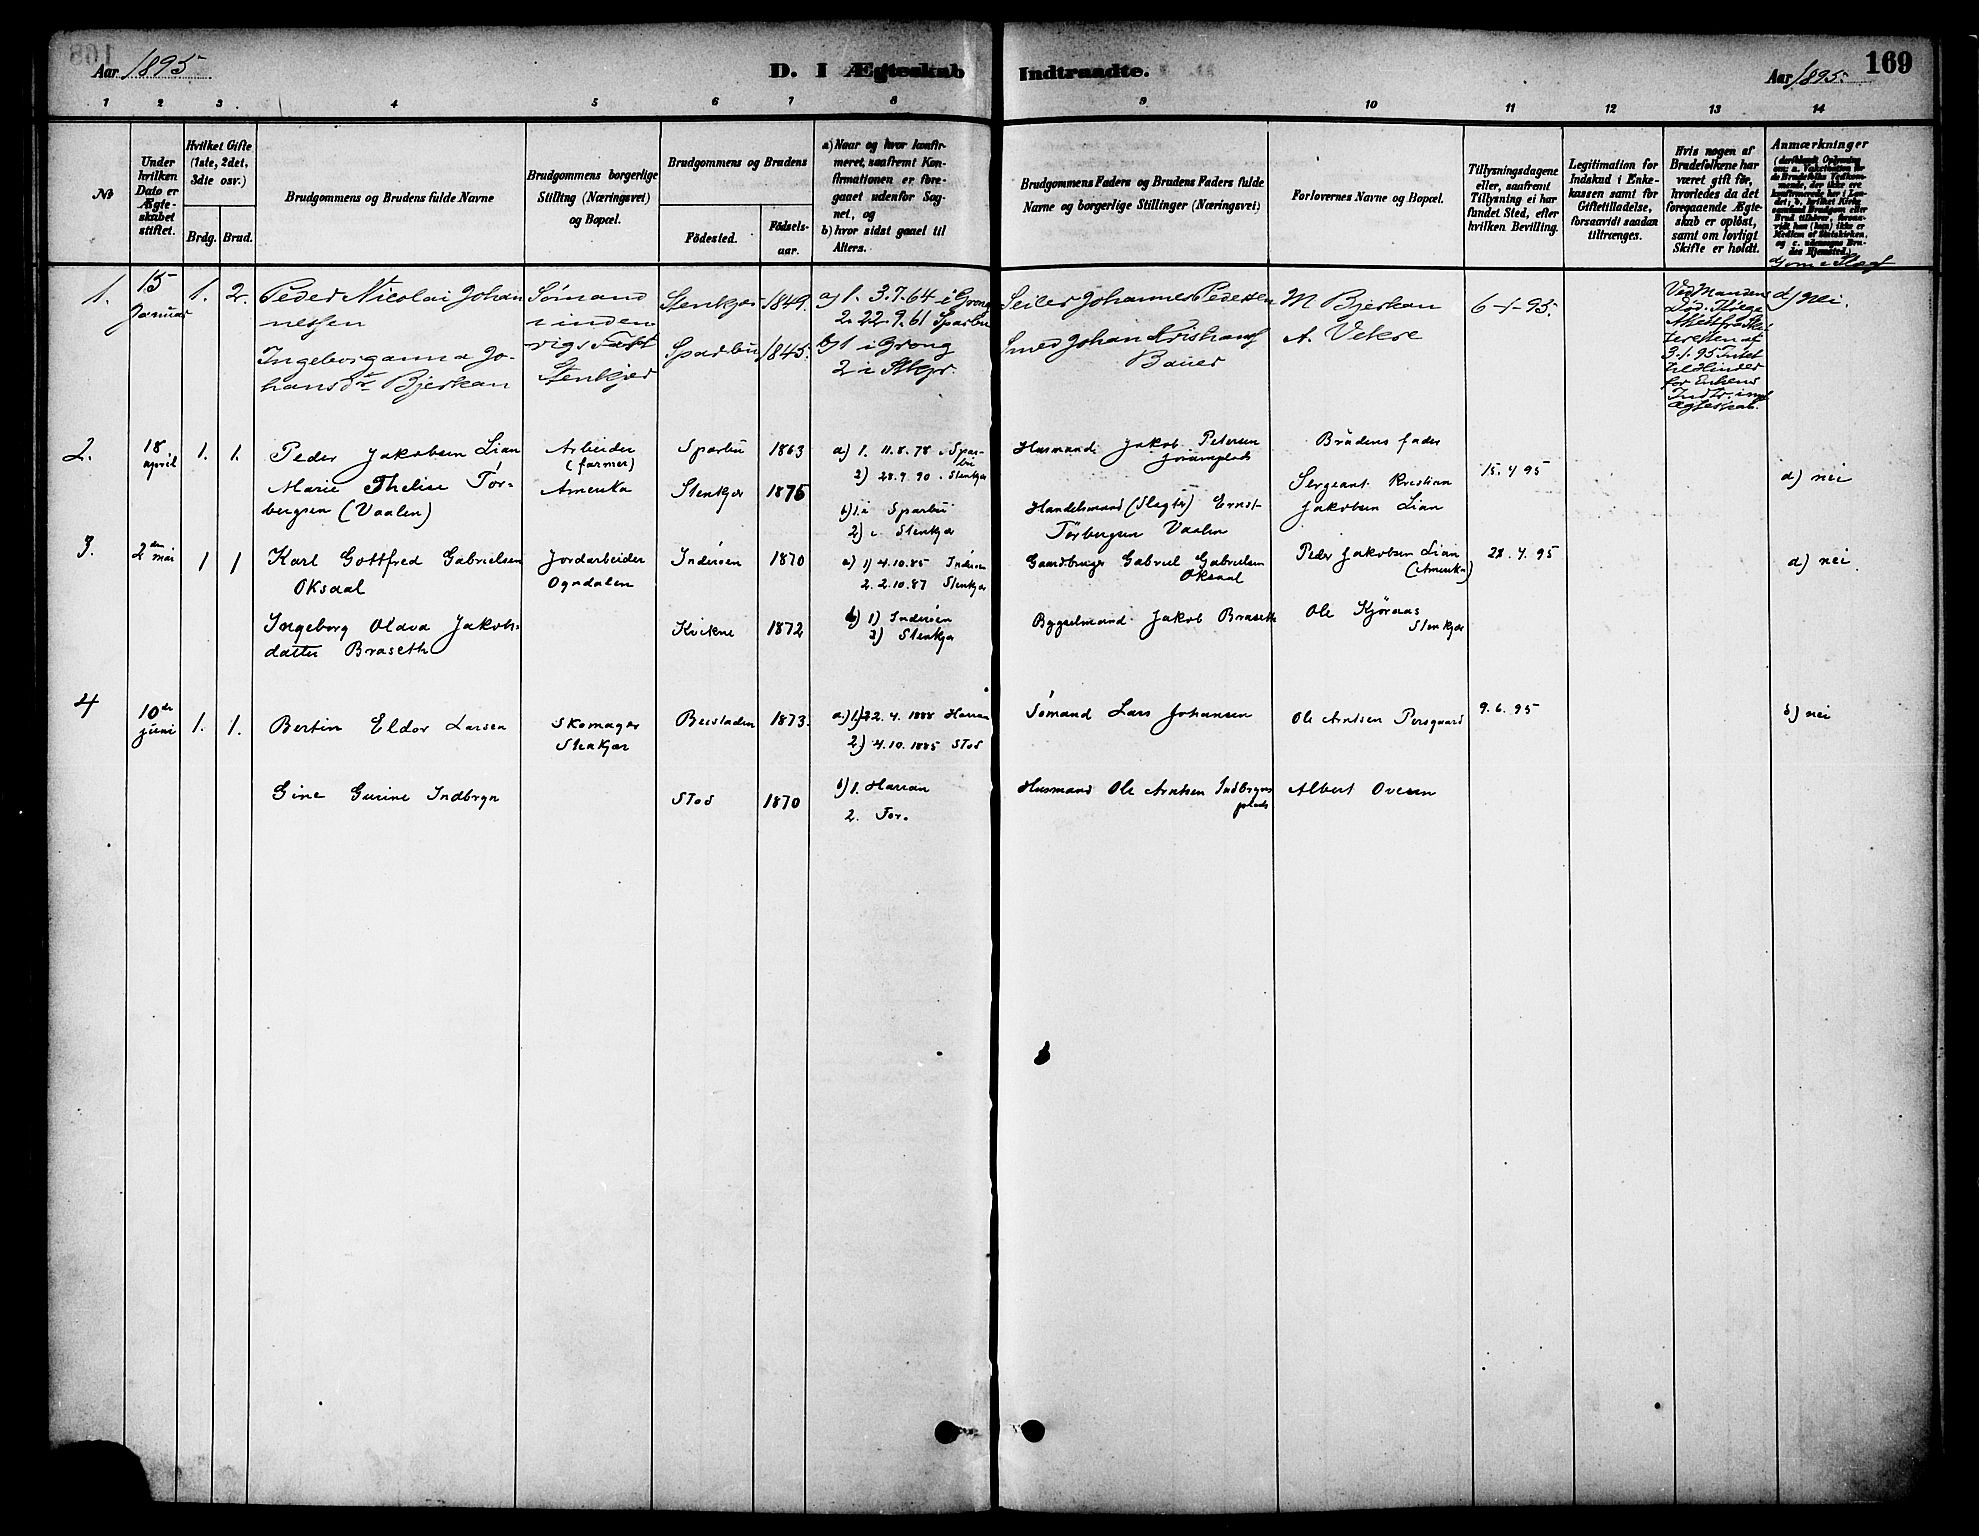 Aar 1895
D. I Ægteskab Indtraadte.
Aar 1895.
169
1 2 3 4 5 6 7 8 9 10 11 12 13 14
No
Under hvilken Dato er Ægteskabet stiftet.
Hvilket Gifte (1ste, 2det, 3die osv.)
Brdg. Brud.
Brudgommens og Brudens fulde Navne
Brudgommens borgerlige Stilling (Næringsvei) og Bopæl.
Brudgommens og Brudens
Födested.
Födselsaar.
a) Naar og hvor konfirmeret, saafremt Konfirmationen er foregaaet udenfor Sognet, og
b) hvor sidst gaaet til Alters.
Brudgommens Faders og Brudens Faders fulde Navne og borgerlige Stillinger (Næringsvei)
Forlovernes Navne og Bopæl.
Tillysningsdagene eller, saafremt Tillysning ei har fundet Sted, efter hvilken Bevilling.
Legitimation for Indskud i Enkekassen samt för Giftetilladelse, forsaavidt saadan tiltrænges.
Hvis nogen af Brudefolkene har været gift för, hvorledes da det foregaaende Ægteskab er oplöst, samt om lovligt Skifte er holdt.
Anmærkninger
1.
15 Januar
1. 2.
Peder Nicolai Johannessen
Ingeborganna Johansdr Bjerkan
Sömand i indenrigs Fart Stenkjer
Stenkjer 1849.
Sparbu 1845.
a) 1. 3.7.64 i Grong
2. 22.9.61 Sparbu
b) 1 i Grong
2 i Stkjr.
Seiler Johannes Pedersen
Smed Johan Kristian Bauer
M Bjerkan
A. Vekse
6-1-95.
Ved Mandens Död.
9.1.95 Intet til Hinder for Enkens Indtr. i nyt Ægteskab.
d) Nei.
2.
18 april
1. 1.
Peder Jakobsen Lian
Marie Thelise Torbergsen (Vaalen)
Arbeider (farmer) Amerika
Sparbu 1863
Stenkjær 1875
a) 1. 11.8.78 Sparbu
2) 28.9.90 Stenkjær
b) 1. i Sparbu
2) i Stenkjær
Husmand Jakob Petersen
Handelsmand (Slagter) Ernst Torbergsen Vaalen
Brudens fader
Sergeant Kristian Jakobsen Lian
15.4 95
d) nei
3.
2den mai
1 1
Karl Gottfred Gabrielsen Oksaal
Ingeborg Olava Jakobsdatter Braseth
Jordarbeider Ogndalen
Inderöen 1870
Kvikne 1872
a) 1) 4.10.85 Inderöen
2. 2.10.87 Stenkjær
b) 1) Inderöen
2) Stenkjær
Gaardbruger Gabriel Gabrielsen Oksaal
Bygselmand Jakob Braseth
Peder Jakobsen Lian (Amerika)
Ole Kjörnaas Stenkjær
28.4.95
d) nei
4
10de juni
1. 1.
Bertin Eldor Larsen
Gine Gurine Indbryn
Skomager Stenkjær
Beistaden 1873.
Stod 1870
a) 1) 22.4.1888 Harran
2) 4.10.1885 Stod
b) 1. Harran
2. For.
Sömand Lars Johansen
Husmand Ole Arntsen Indbrynsplads
Ole Arntsen Persgaard
Albert Ovesen
9.6.95
d) nei